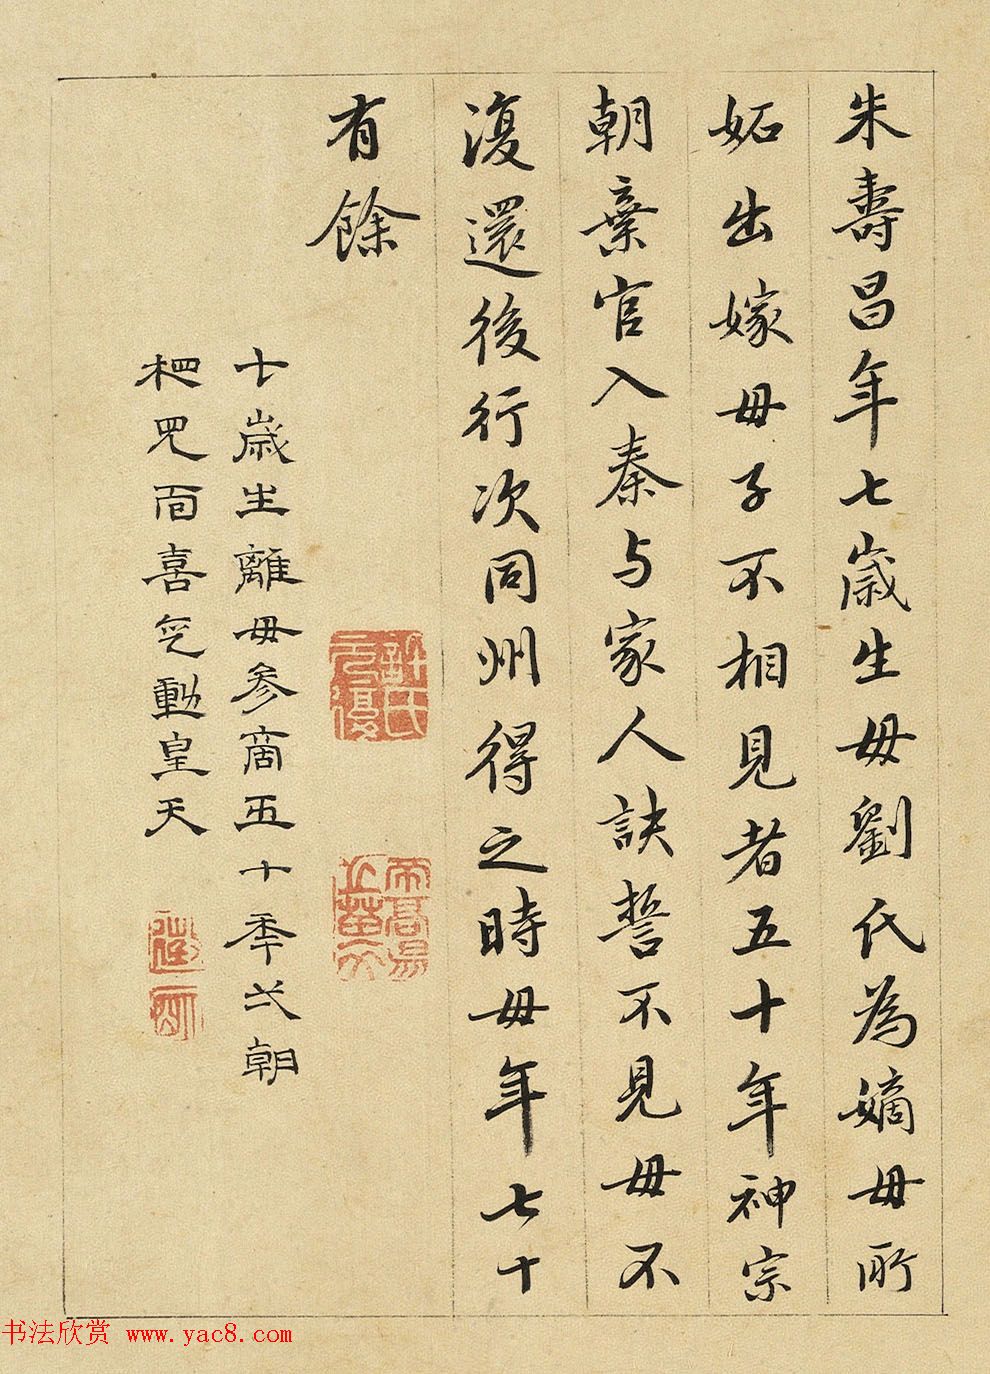 朱壽昌年七歲生母劉氏為嫡母所
妬出嫁母子不相見者五十年神宗
朝棄官入秦与家人訣誓不見母不
復還後行次同州得之時母年七十
有餘
七歲生離母參商五十季弌朝
相見面喜气動皇天
許氏元復
書法欣賞 www.yac8.com